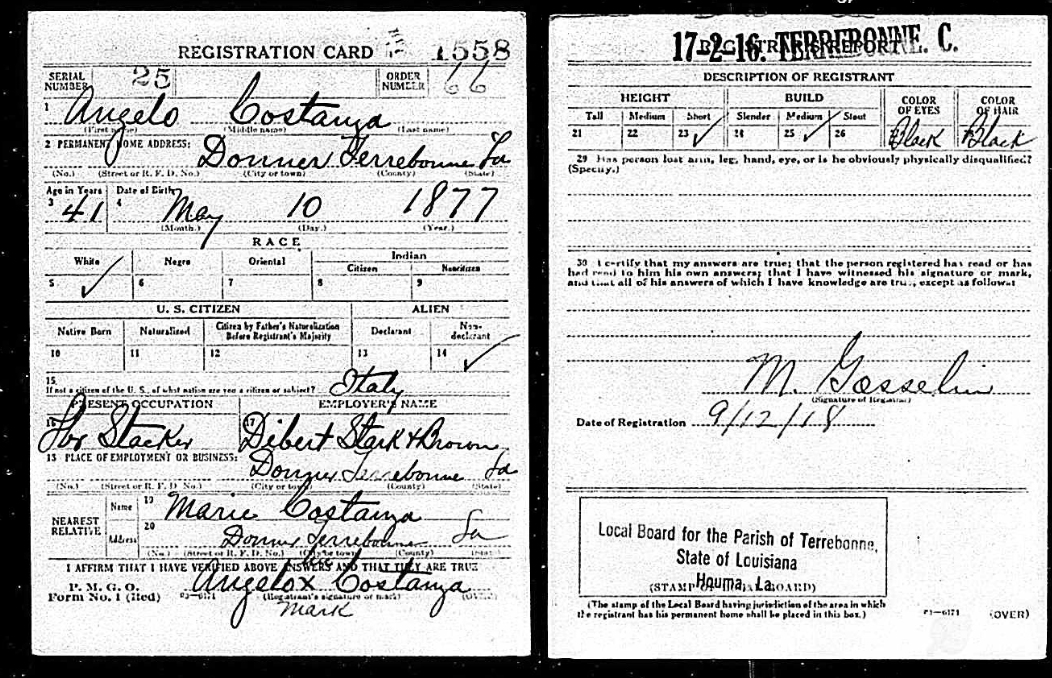 REGISTRATION CARD 1558
SERIAL NUMBER 25 ORDER NUMBER 66
1 Angelo Costanza
(First name) (Middle name) (Last name)
2 PERMANENT HOME ADDRESS: Donner Terrebonne La
(No.) (Street or R. F. D. No.) (City or town) (County) (State)
Age in Years Date of Birth
3 41 4 May 10 1877
(Month.) (Day.) (Year.)
RACE
White Negro Oriental Indian
Citizen Noncitizen
5 ✓ 6 7 8 9
U. S. CITIZEN ALIEN
Native Born Naturalized Citizen by Father's Naturalization Before Registrant's Majority Declarant Non-declarant
10 11 12 13 14 ✓
15 If not a citizen of the U. S., of what nation are you a citizen or subject? Italy
PRESENT OCCUPATION EMPLOYER'S NAME
16 Stacker 17 Dibert Stark & Brown
18 PLACE OF EMPLOYMENT OR BUSINESS:
Donner Terrebonne La
(No.) (Street or R. F. D. No.) (City or town) (County) (State)
NEAREST RELATIVE Name 19 Marie Costanza
Address 20 Donner Terrebonne La
(No.) (Street or R. F. D. No.) (City or town) (County) (State)
I AFFIRM THAT I HAVE VERIFIED ABOVE ANSWERS AND THAT THEY ARE TRUE
P. M. G. O.
Form No. 1 (Red) 03—6171 Angelo x Costanza
(Registrant's signature or mark) (OVER)
mark
17-2-16. TERREBONNE. C.
REGISTRAR'S REPORT
DESCRIPTION OF REGISTRANT
HEIGHT BUILD COLOR OF EYES COLOR OF HAIR
Tall Medium Short Slender Medium Stout
21 22 23 ✓ 24 25 ✓ 26 Black Black
29 Has person lost arm, leg, hand, eye, or is he obviously physically disqualified?
(Specify.)
30 I certify that my answers are true; that the person registered has read or has
had read to him his own answers; that I have witnessed his signature or mark,
and that all of his answers of which I have knowledge are true, except as follows:
M. Gosselin
(Signature of Registrar)
Date of Registration 9/12/18
Local Board for the Parish of Terrebonne,
State of Louisiana
Houma, La.
(STAMP OF LOCAL BOARD)
(The stamp of the Local Board having jurisdiction of the area in which
the registrant has his permanent home shall be placed in this box.)
03—6171 (OVER)